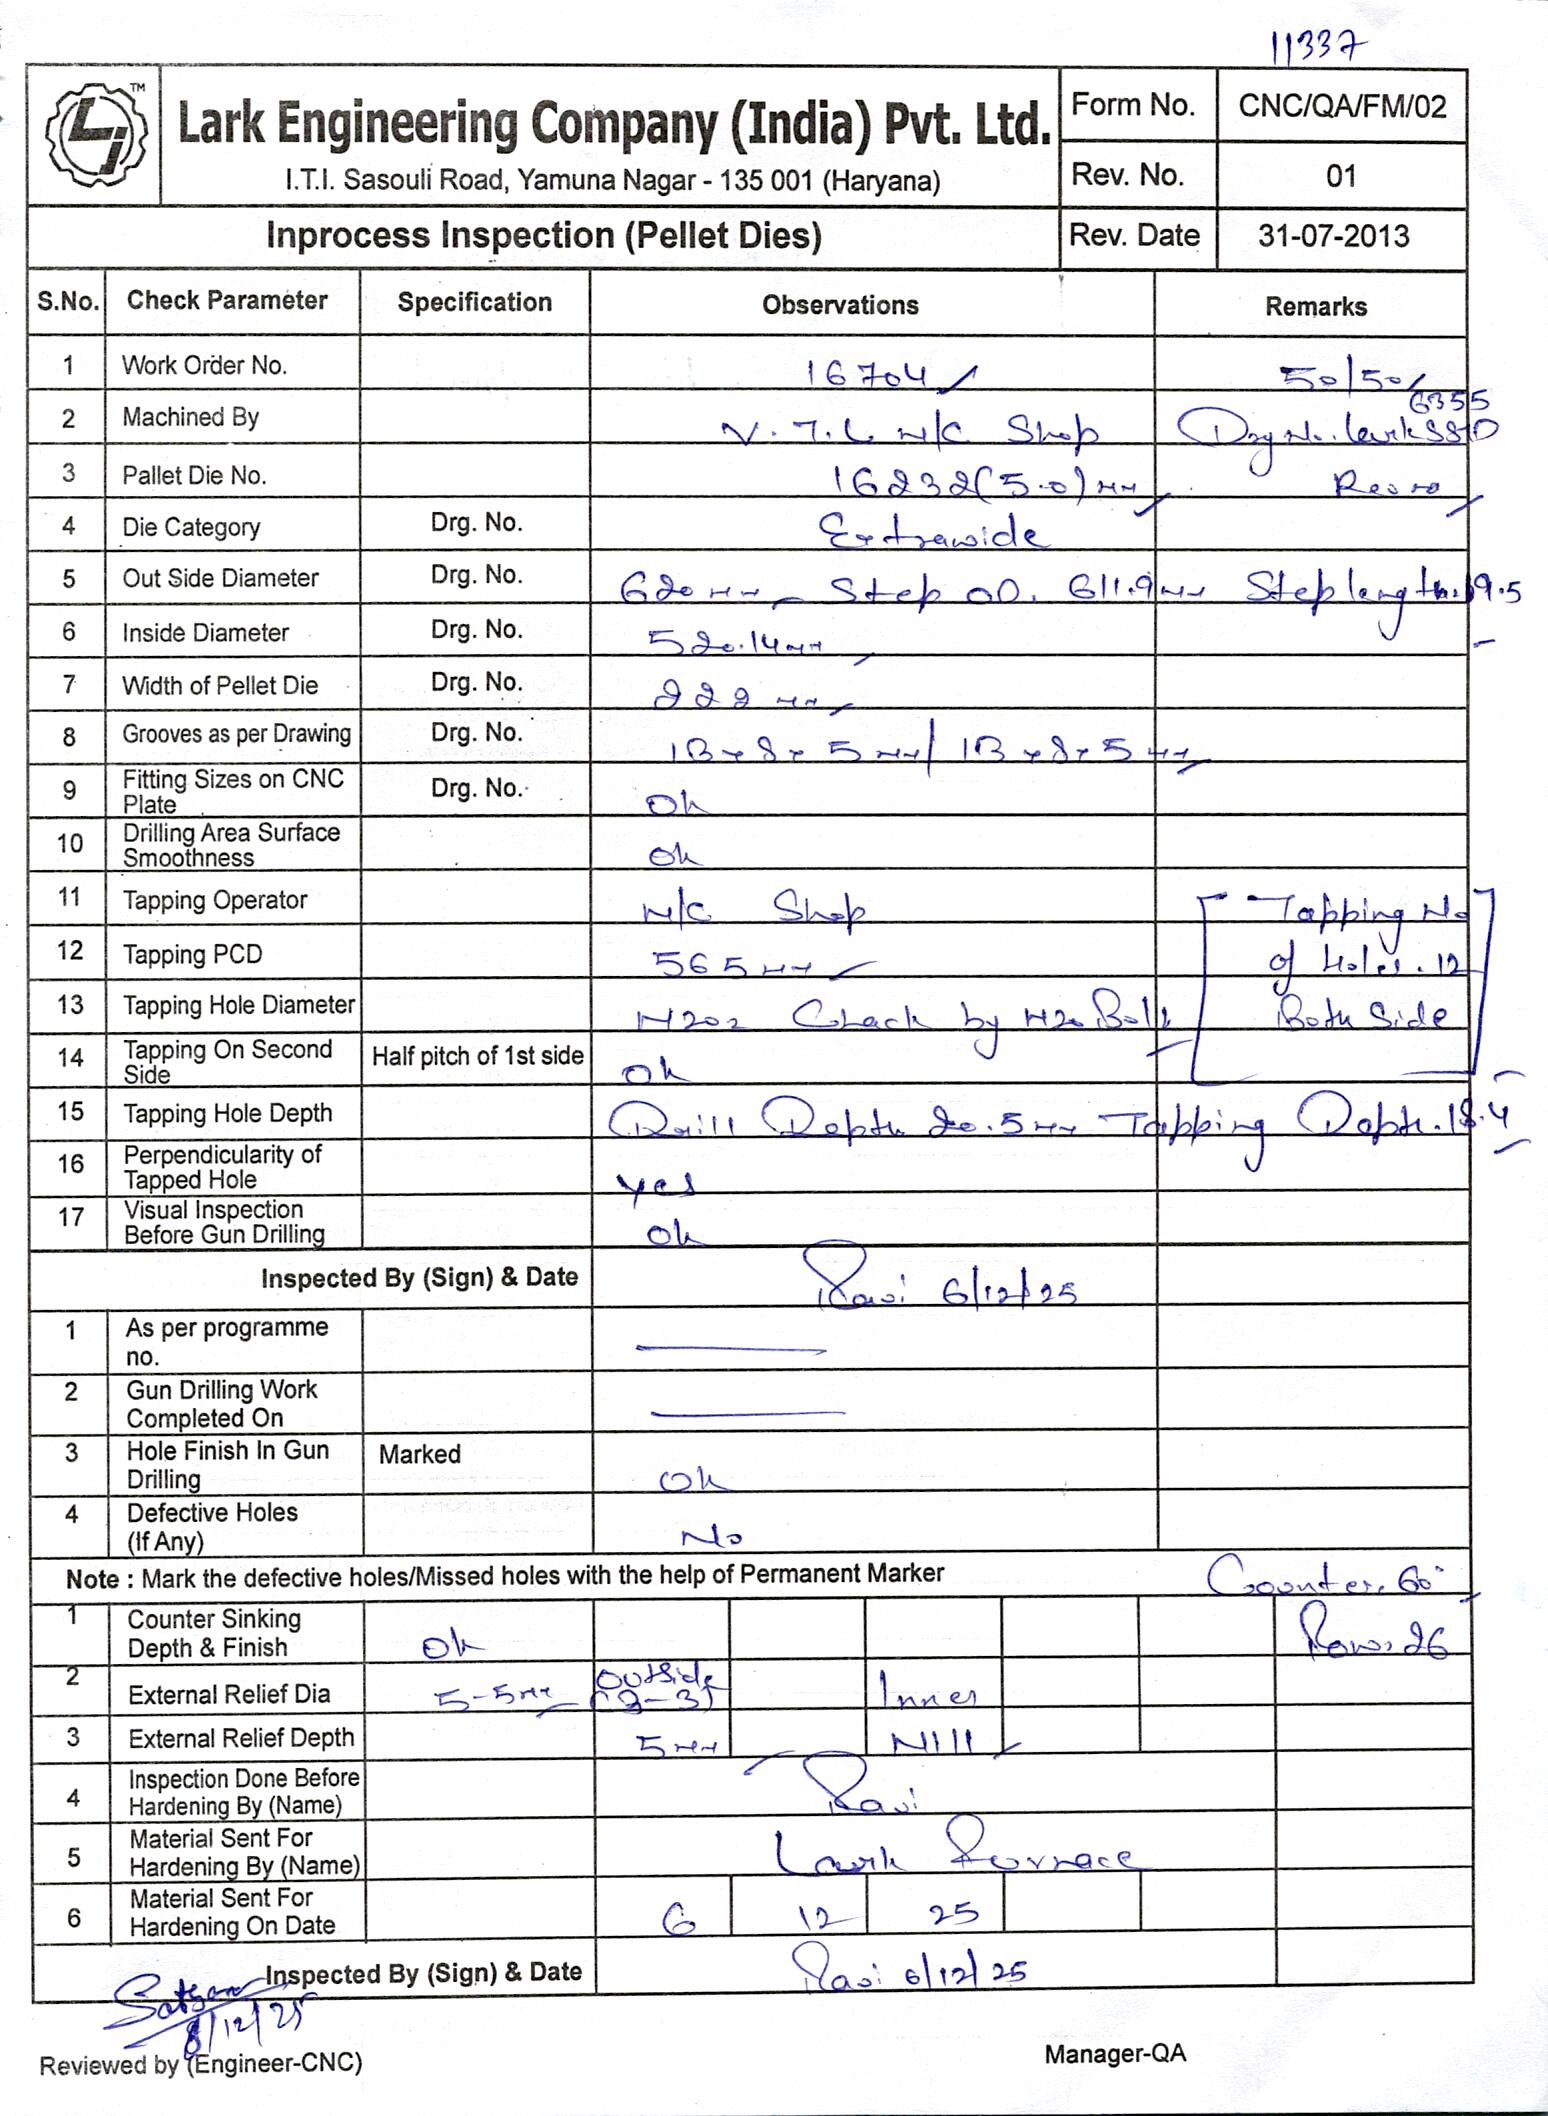 11337
LI TM
Lark Engineering Company (India) Pvt. Ltd.
I.T.I. Sasouli Road, Yamuna Nagar - 135 001 (Haryana)
Form No. CNC/QA/FM/02
Rev. No. 01
Inprocess Inspection (Pellet Dies)
Rev. Date 31-07-2013
S.No. Check Parameter Specification Observations Remarks
1 Work Order No. 16704 50/50
2 Machined By V.T.L M/C Shop Drg No. 6355
3 Pallet Die No. 16232(5.0)mm
4 Die Category Drg. No. Extrawide
5 Out Side Diameter Drg. No. 620mm Step OD. 611.9mm Step length. 19.5
6 Inside Diameter Drg. No. 520.14mm
7 Width of Pellet Die Drg. No. 222mm
8 Grooves as per Drawing Drg. No. 13x8x5mm/13x8x5mm
9 Fitting Sizes on CNC Plate Drg. No. Ok
10 Drilling Area Surface Smoothness Ok
11 Tapping Operator M/C Shop Tapping No
12 Tapping PCD 565mm of holes. 12
13 Tapping Hole Diameter M20 Check by M20 Bolt Both Side
14 Tapping On Second Side Half pitch of 1st side Ok
15 Tapping Hole Depth Drill Depth 20.5mm Tapping Depth. 18.4
16 Perpendicularity of Tapped Hole Yes
17 Visual Inspection Before Gun Drilling Ok
Inspected By (Sign) & Date Ravi 6/12/25
1 As per programme no.
2 Gun Drilling Work Completed On
3 Hole Finish In Gun Drilling Marked Ok
4 Defective Holes (If Any) No
Note : Mark the defective holes/Missed holes with the help of Permanent Marker Counter. 60°
1 Counter Sinking Depth & Finish Ok Row. 26
2 External Relief Dia 5-5mm Outside (3-3) Inner
3 External Relief Depth 5mm Nill
4 Inspection Done Before Hardening By (Name) Ravi
5 Material Sent For Hardening By (Name) Lark Furnace
6 Material Sent For Hardening On Date 6 12 25
Inspected By (Sign) & Date Ravi 6/12/25
8/12/25
Reviewed by (Engineer-CNC) Manager-QA